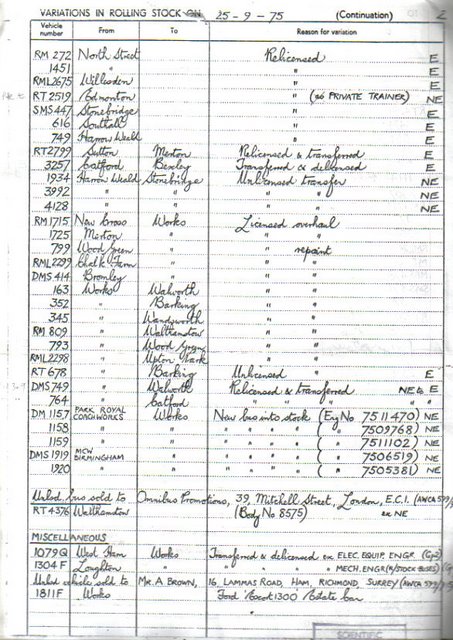 VARIATIONS IN ROLLING STOCK ON 25-9-75 (Continuation) 2
Vehicle number From To Reason for variation
RM 272 North Street Relicensed E
1451 " " E
RML2675 Willesden " E
RT 2519 Edmonton " (as PRIVATE TRAINER) NE
SMS 447 Stonebridge " E
616 Southall " E
749 Harrow Weald " E
RT2799 Sutton Merton Relicensed & transferred E
3257 Catford Bexley Transferred & delicensed E
1934 Harrow Weald Stonebridge Unlicensed transfer NE
3992 " " " " NE
4128 " " " " NE
RM 1715 New Cross Works Licensed overhaul
1725 Merton " " "
799 Wood Green " " repaint
RML 2299 Chalk Farm " " "
DMS 414 Bromley " " "
163 Works Walworth " "
352 " Barking " "
345 " Wandsworth " "
RM 809 " Walthamstow " "
793 " Wood Green " "
RML2298 " Upton Park " "
RT 678 " Barking Unlicensed " E
DMS 749 " Walworth Relicensed & transferred NE to E
764 " Catford " " " " "
DM 1157 PARK ROYAL COACHWORKS Works New bus into stock (Eng No 7511470) NE
1158 " " " " " " ( " 7509768) NE
1159 " " " " " " ( " 7511102) NE
DMS 1919 MCW BIRMINGHAM " " " " " ( " 7506519) NE
1920 " " " " " " ( " 7505381) NE
Unlcd bus sold to Omnibus Promotions, 39, Mitchell Street, London, E.C.1.
RT 4376 Walthamstow (Body No 8575) ex NE
MISCELLANEOUS
1079Q West Ham Works Transferred & delicensed ex ELEC. EQUIP. ENGR.
1304 F Loughton " " " " MECH. ENGR
Unlcd vehicles sold to Mr. A BROWN, 16, LAMMAS ROAD, HAM, RICHMOND, SURREY
1811F Works Ford Escort 1300 Estate car
SCIENTIFIC